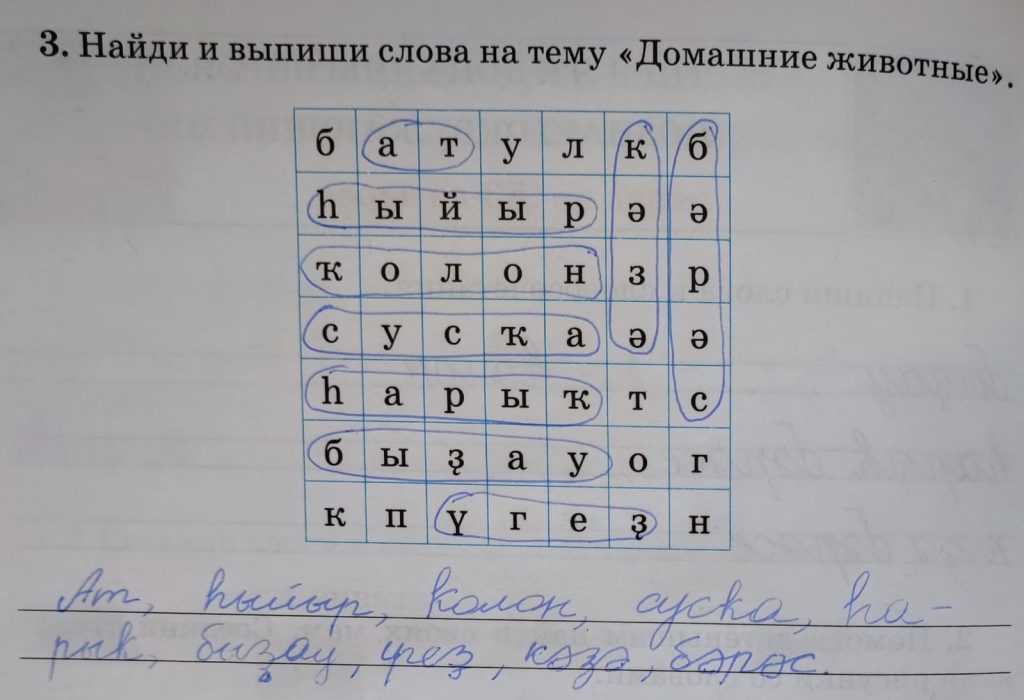 3. Найди и выпиши слова на тему «Домашние животные».
б а т у л к б
һ ы й ы р ә ә
ҡ о л о н з р
с у с ҡ а ә ә
һ а р ы ҡ т с
б ы ҙ а у о г
к п ү г е ҙ н
Ат, һыйыр, колон, суска, һа-
рык, быҙау, үгеҙ, кәзә, бәрәс